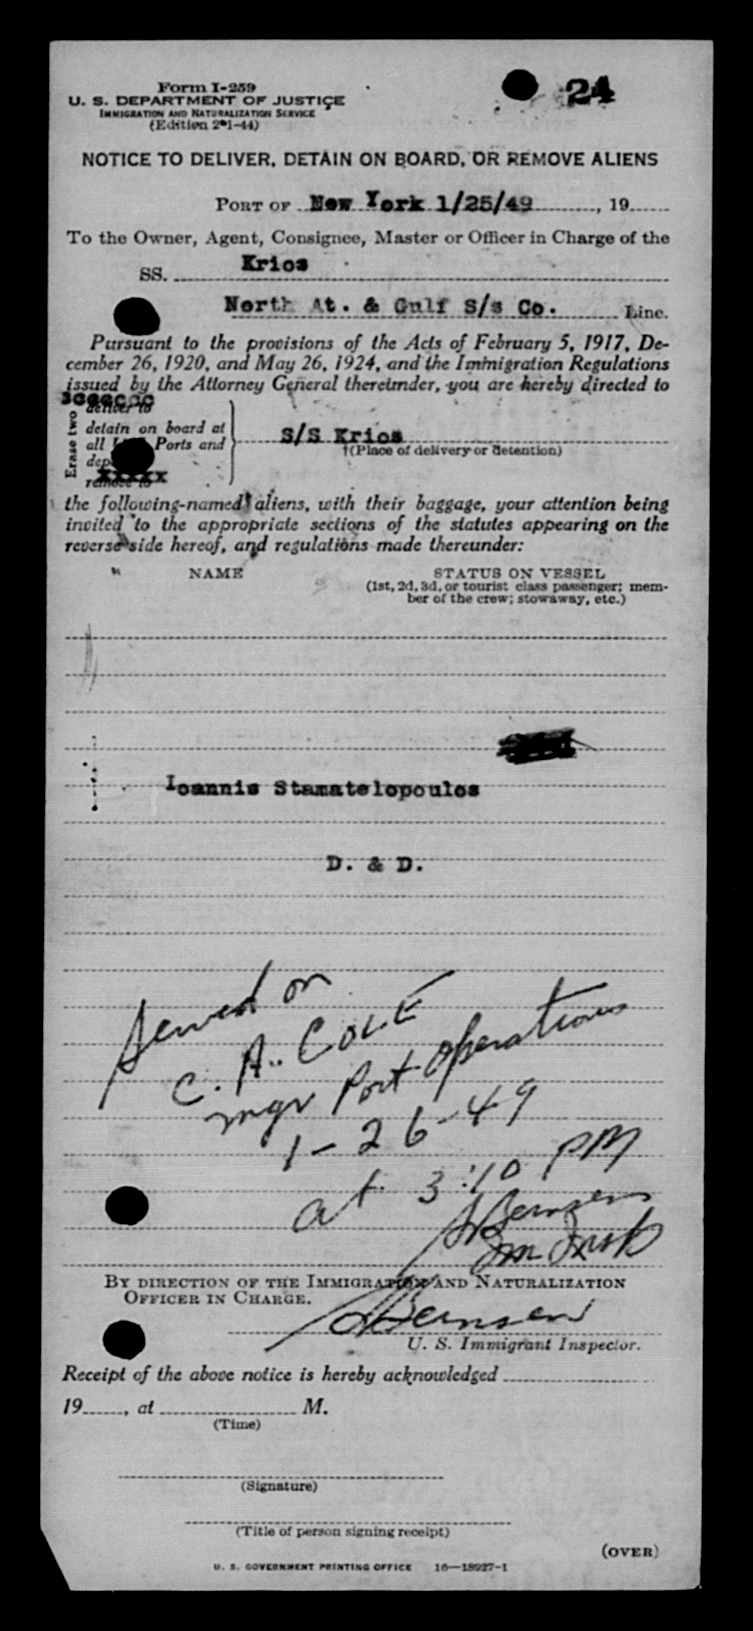 Form I-259
24
U. S. DEPARTMENT OF JUSTICE
IMMIGRATION AND NATURALIZATION SERVICE
(Edition 2-1-44)
NOTICE TO DELIVER, DETAIN ON BOARD, OR REMOVE ALIENS
PORT OF New York 1/25/49, 19
To the Owner, Agent, Consignee, Master or Officer in Charge of the
SS. Krios
North At. & Gulf S/s Co. Line.
Pursuant to the provisions of the Acts of February 5, 1917, De-
cember 26, 1920, and May 26, 1924, and the Immigration Regulations
issued by the Attorney General thereunder, you are hereby directed to
Erase two
deliver to
detain on board at
all Ports and
S/S Krios
†(Place of delivery or detention)
xxxxx
remove to
the following-named aliens, with their baggage, your attention being
invited to the appropriate sections of the statutes appearing on the
reverse side hereof, and regulations made thereunder:
NAME
STATUS ON VESSEL
(1st, 2d, 3d, or tourist class passenger; mem-
ber of the crew; stowaway, etc.)
Ioannis Stamatelopoulos
D. & D.
Served on
C. A. COLE
mgr Port Operations
1-26-49
at 3:10 PM
BY DIRECTION OF THE IMMIGRATION AND NATURALIZATION
OFFICER IN CHARGE.
U. S. Immigrant Inspector.
Receipt of the above notice is hereby acknowledged
19, at M.
(Time)
(Signature)
(Title of person signing receipt)
(OVER)
U. S. GOVERNMENT PRINTING OFFICE 16—18927-1